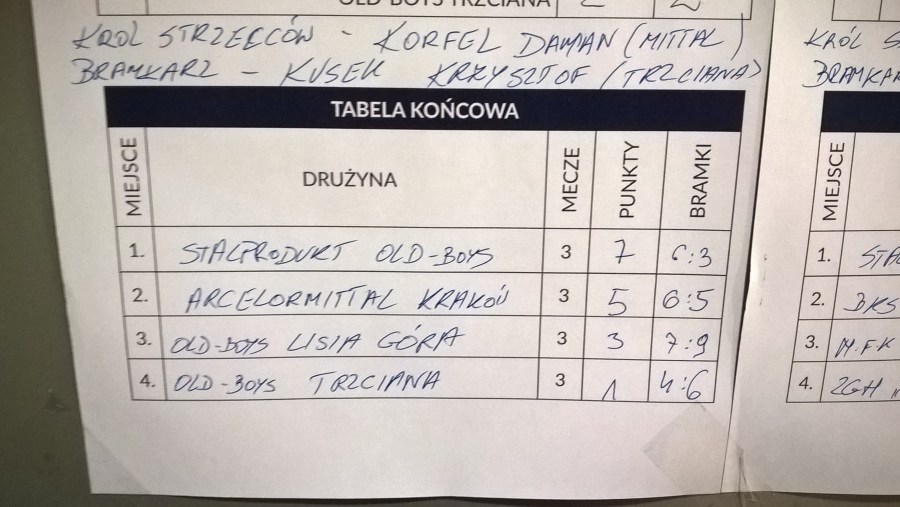 OLD-BOYS TRZCIANA
KRÓL STRZELCÓW - KORFEL DAMIAN (MITTAL)
BRAMKARZ - KUSEK KRZYSZTOF (TRZCIANA)
TABELA KOŃCOWA
MIEJSCE DRUŻYNA MECZE PUNKTY BRAMKI
1. STALPRODUKT OLD-BOYS 3 7 6:3
2. ARCELORMITTAL KRAKÓW 3 5 6:5
3. OLD-BOYS LISIA GÓRA 3 3 7:9
4. OLD-BOYS TRZCIANA 3 1 4:6
KRÓL
MIEJSCE
1.
2. BKS
3. M.F.K
4. ZGH